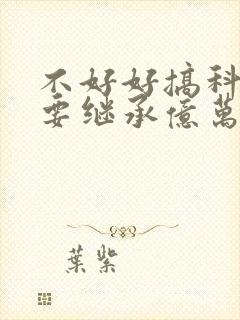 不好好搞科
要继承億萬
葉紫